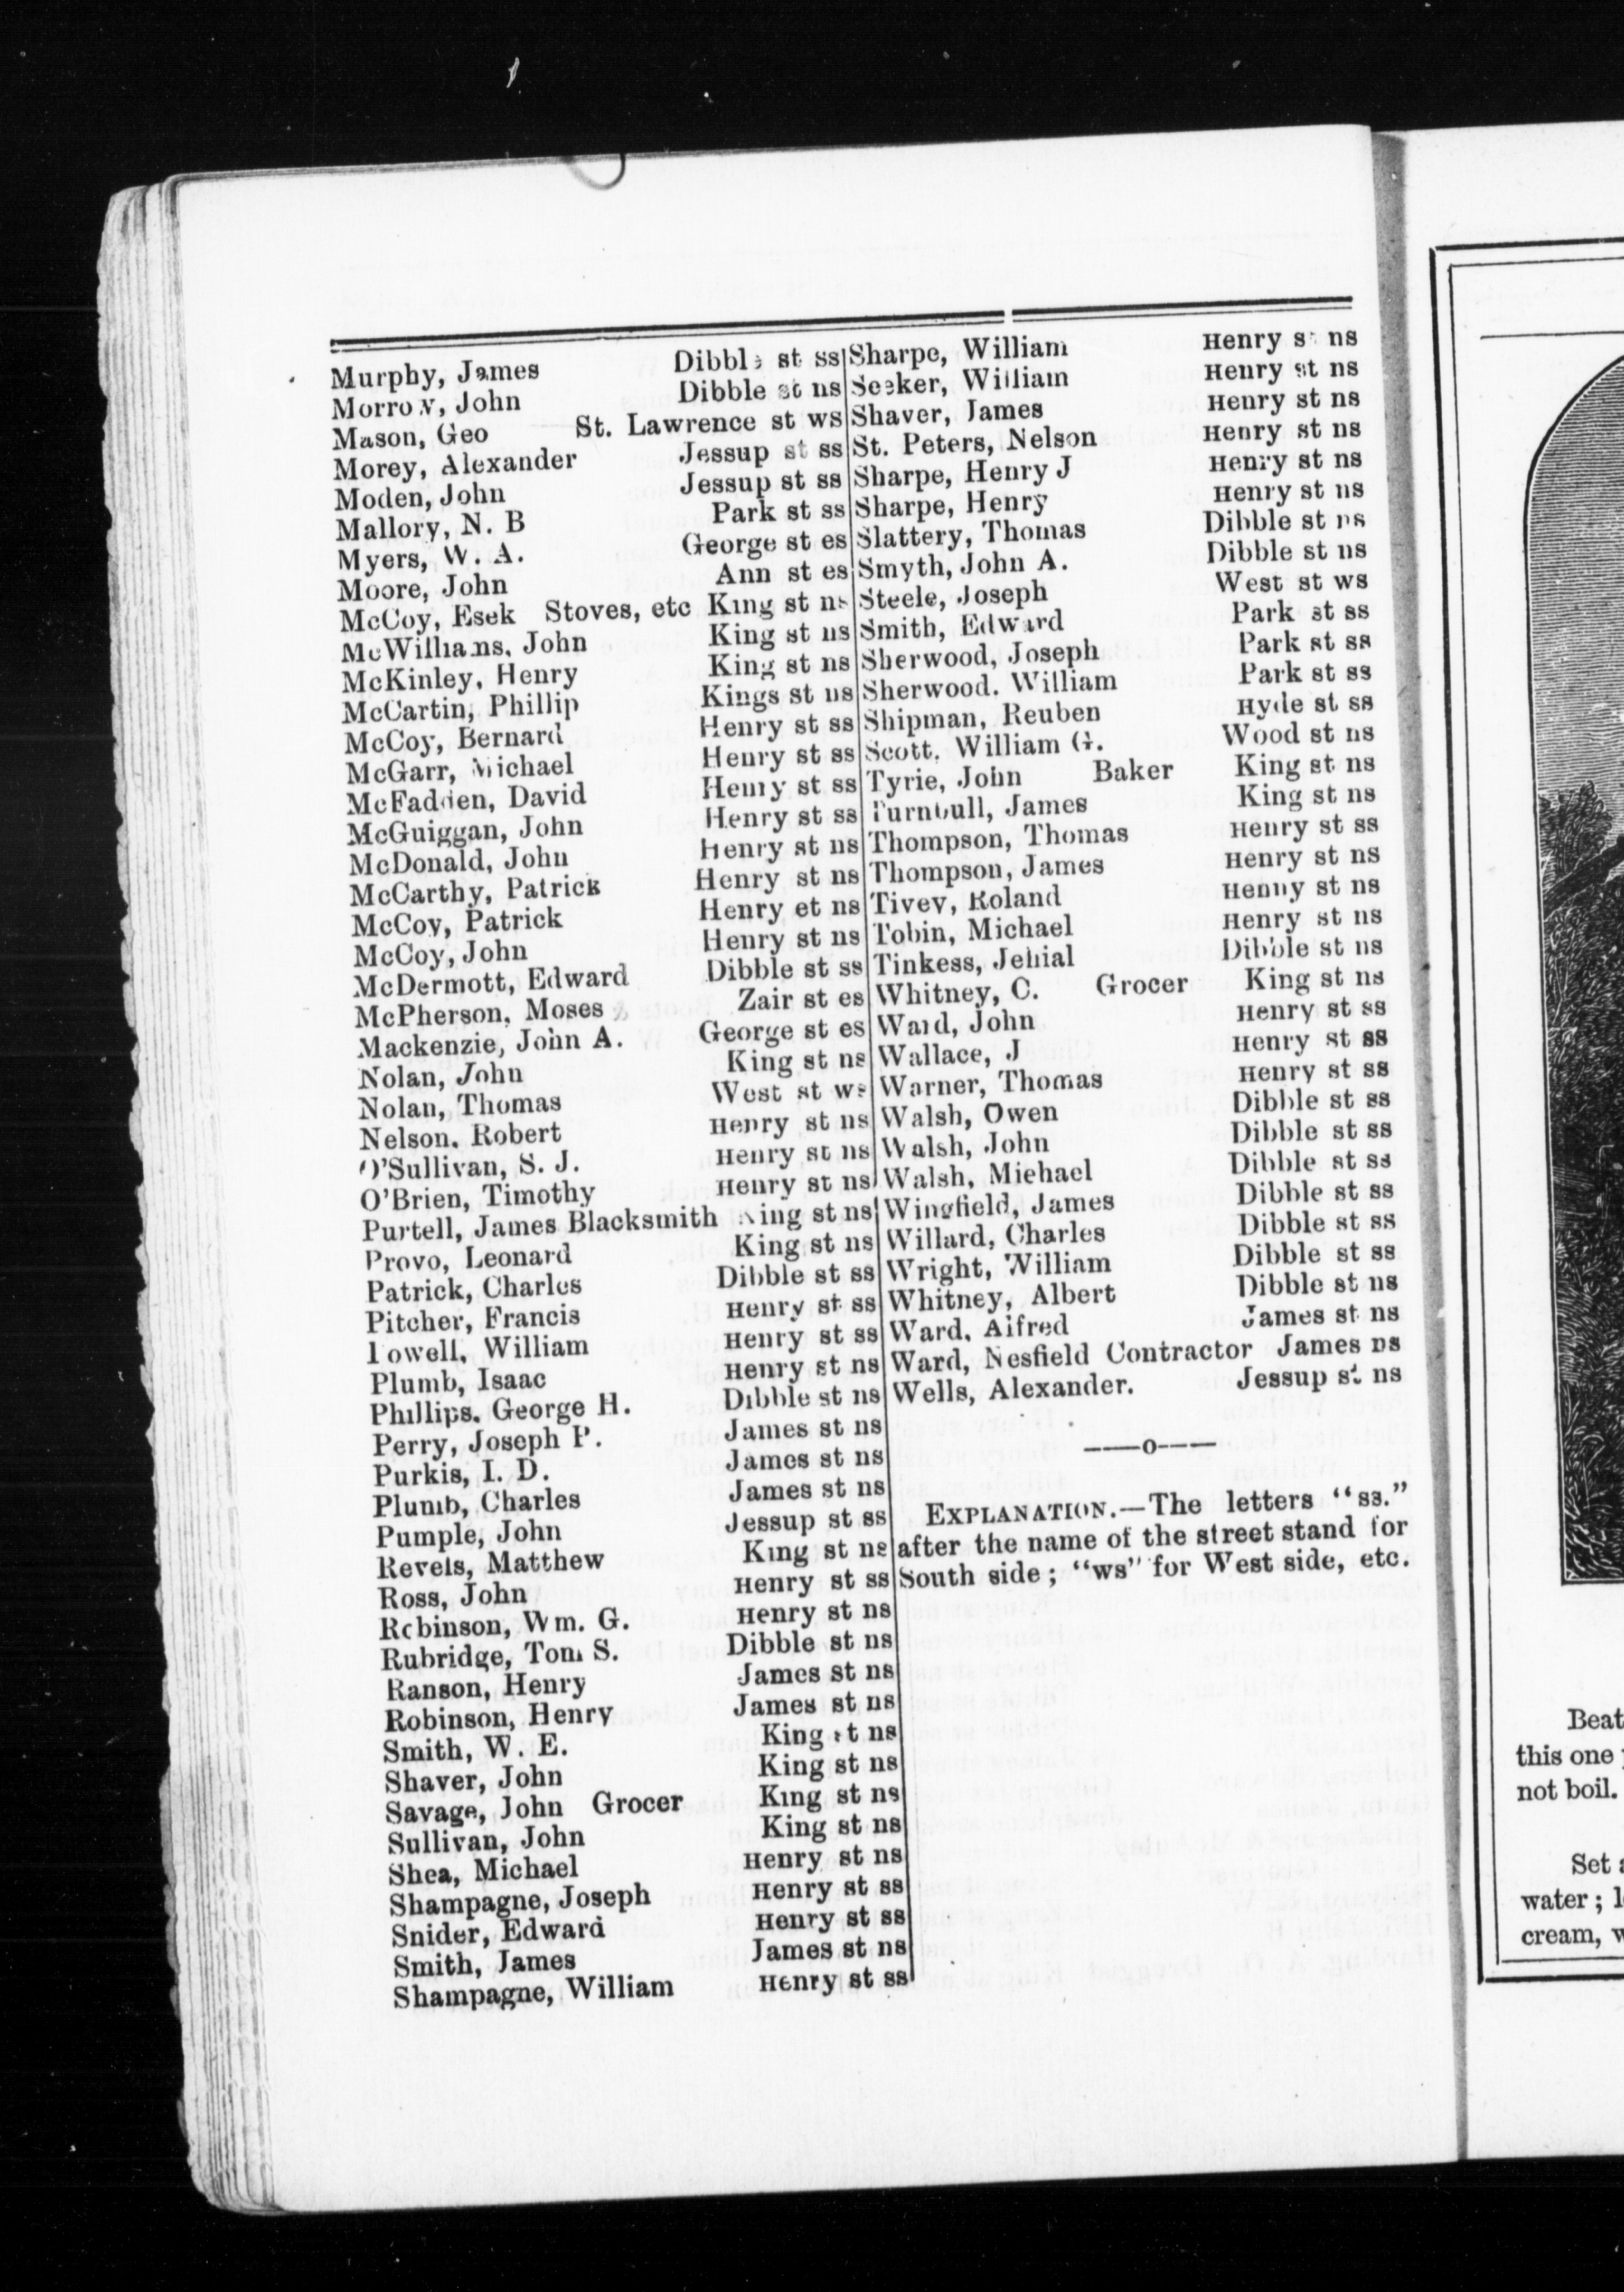 Murphy, James Dibble st ss
Morrow, John Dibble st ns
Mason, Geo St. Lawrence st ws
Morey, Alexander Jessup st ss
Moden, John Jessup st ss
Mallory, N. B Park st ss
Myers, W. A. George st es
Moore, John Ann st es
McCoy, Esek Stoves, etc King st ns
McWilliams, John King st ns
McKinley, Henry King st ns
McCartin, Phillip Kings st ns
McCoy, Bernard Henry st ss
McGarr, Michael Henry st ss
McFadden, David Henry st ss
McGuiggan, John Henry st ss
McDonald, John Henry st ns
McCarthy, Patrick Henry st ns
McCoy, Patrick Henry et ns
McCoy, John Henry st ns
McDermott, Edward Dibble st ss
McPherson, Moses Zair st es
Mackenzie, John A. George st es
Nolan, John King st ns
Nolan, Thomas West st ws
Nelson, Robert Henry st ns
O'Sullivan, S. J. Henry st ns
O'Brien, Timothy Henry st ns
Purtell, James Blacksmith King st ns
Provo, Leonard King st ns
Patrick, Charles Dibble st ss
Pitcher, Francis Henry st ss
Powell, William Henry st ss
Plumb, Isaac Henry st ns
Phillips, George H. Dibble st ns
Perry, Joseph P. James st ns
Purkis, I. D. James st ns
Plumb, Charles James st ns
Pumple, John Jessup st ss
Revels, Matthew King st ns
Ross, John Henry st ss
Robinson, Wm. G. Henry st ns
Rubridge, Tom S. Dibble st ns
Ranson, Henry James st ns
Robinson, Henry James st ns
Smith, W. E. King st ns
Shaver, John King st ns
Savage, John Grocer King st ns
Sullivan, John King st ns
Shea, Michael Henry st ns
Shampagne, Joseph Henry st ss
Snider, Edward Henry st ss
Smith, James James st ns
Shampagne, William Henry st ss
Sharpe, William Henry st ns
Seeker, William Henry st ns
Shaver, James Henry st ns
St. Peters, Nelson Henry st ns
Sharpe, Henry J Henry st ns
Sharpe, Henry Henry st ns
Slattery, Thomas Dibble st ns
Smyth, John A. Dibble st ns
Steele, Joseph West st ws
Smith, Edward Park st ss
Sherwood, Joseph Park st ss
Sherwood. William Park st ss
Shipman, Reuben Hyde st ss
Scott, William G. Wood st ns
Tyrie, John Baker King st ns
Turnbull, James King st ns
Thompson, Thomas Henry st ss
Thompson, James Henry st ns
Tivey, Roland Henny st ns
Tobin, Michael Henry st ns
Tinkess, Jehial Dibble st ns
Whitney, C. Grocer King st ns
Ward, John Henry st ss
Wallace, J Henry st ss
Warner, Thomas Henry st ss
Walsh, Owen Dibble st ss
Walsh, John Dibble st ss
Walsh, Miehael Dibble st ss
Wingfield, James Dibble st ss
Willard, Charles Dibble st ss
Wright, William Dibble st ss
Whitney, Albert Dibble st ns
Ward, Alfred James st ns
Ward, Nesfield Contractor James ns
Wells, Alexander. Jessup st ns
——o——
EXPLANATION.—The letters "ss."
after the name of the street stand for
South side; "ws" for West side, etc.
Beat
this one
not boil.
Set
water;
cream,